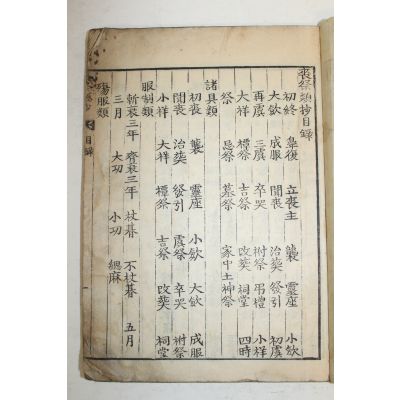 喪祭類抄目錄
初終 皐復 立喪主 襲 靈座 小歛
大歛 成服 聞喪 治葬 發引 初虞
再虞 三虞 卒哭 祔祭 吊禮 小祥
大祥 禫祭 吉祭 改葬 祠堂 四時
祭 忌祭 墓祭 家中土神祭
諸具類
初喪 襲 靈座 小歛 大歛 成服
聞喪 治葬 發引 虞祭 卒哭 祔祭
小祥 大祥 禫祭 吉祭 改葬 祠堂
服制類
斬衰三年 齊衰三年 杖朞 不杖朞 五月
三月 大功 小功 緦麻
殤服類
目錄